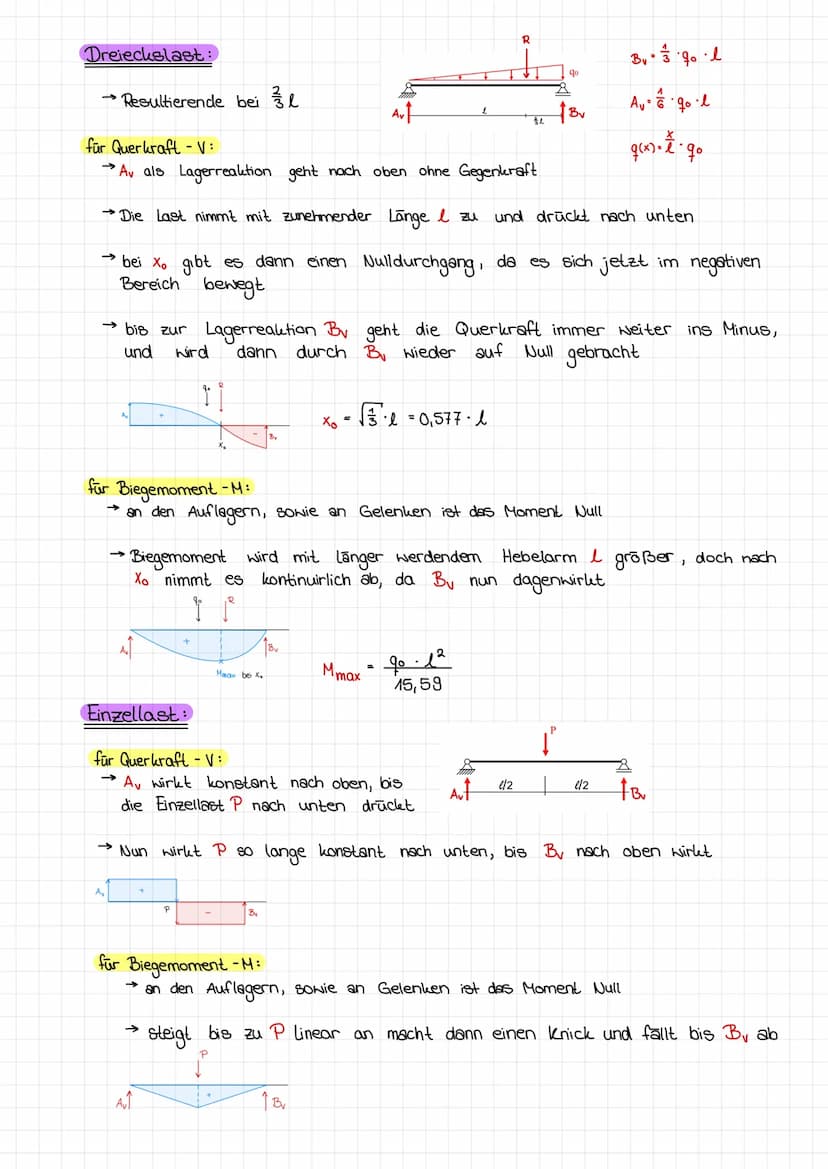 Dreieckslast:
R
q₀
A_v
l
⅓l
B_v
B_v = 1/3 · q₀ · l
→ Resultierende bei 2/3 l
A_v = 1/6 · q₀ · l
q(x) = x/l · q₀
für Querkraft - V:
→ A_v als Lagerreaktion geht nach oben ohne Gegenkraft
→ Die Last nimmt mit zunehmender Länge l zu und drückt nach unten
→ bei x₀ gibt es dann einen Nulldurchgang, da es sich jetzt im negativen
Bereich bewegt
→ bis zur Lagerreaktion B_v geht die Querkraft immer weiter ins Minus,
und wird dann durch B_v wieder auf Null gebracht
q₀ R
A_v + - B_v
x₀
x₀ = √(1/3) · l = 0,577 · l
für Biegemoment - M:
→ an den Auflagern, sowie an Gelenken ist das Moment Null
→ Biegemoment wird mit länger werdendem Hebelarm l größer, doch nach
x₀ nimmt es kontinuirlich ab, da B_v nun dagenwirkt
q₀ R
A_v + B_v
M_max bei x₀
M_max = q₀ · l² / 15,59
Einzellast:
P
A_v
l/2
l/2
B_v
für Querkraft - V:
→ A_v wirkt konstant nach oben, bis
die Einzellast P nach unten drückt
→ Nun wirkt P so lange konstant nach unten, bis B_v nach oben wirkt
A_v +
P - B_v
für Biegemoment - M:
→ an den Auflagern, sowie an Gelenken ist das Moment Null
→ steigt bis zu P linear an macht dann einen Knick und fällt bis B_v ab
P
A_v + B_v